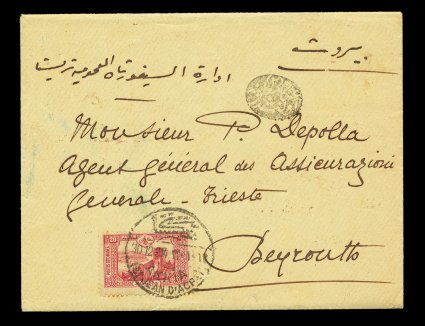 بيروت
ادارة السيغورتاه العموميه تريستا
Monsieur P. Depolla
Agent général des Assicurazioni
Generali - Trieste
Beyrouth
D'ACRE